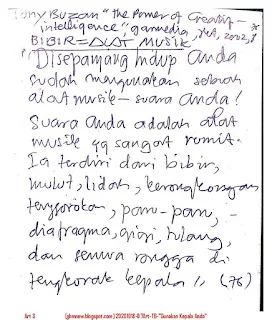 Tony Buzan "the Power of Creativ-
intelligence" gamedia, Jkt, 2002,
BIBIR = ALAT MUSIK
"Disepanjang hidup Anda
sudah mengunakan sebuah
alat musik - suara Anda!
Suara Anda adalah alat
musik yg sangat rumit.
Ia terdiri dari bibir,
mulut, lidah, kerongkongan
tenggorokan, paru-paru, -
diafragma, gigi, tulang,
dan semua rongga di
tengkorak kepala" (76)
Art G (ghiwww.blogspot.com) 20201018-G "Art-TB-"Gunakan Kepala Anda"